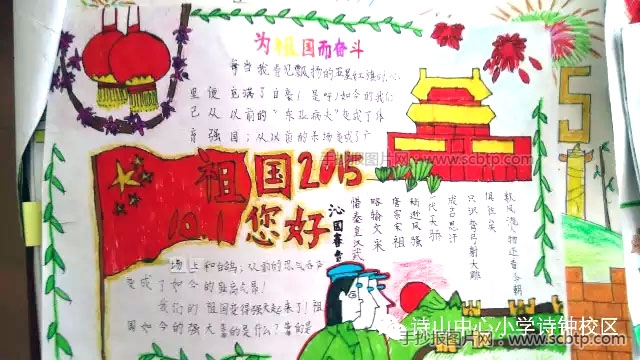 为祖国而奋斗
每当我看见飘扬的五星红旗时,心
里便充满了自豪!是呀!如今的我们
已从以前的“东亚病夫”变成了体
育强国;从以前的
手抄报图片网 www.scbtp.com
祖国2015
10.1 您好
沁园春雪
惜秦皇汉武
略输文采
唐宗宋祖
稍逊风骚
一代天骄
成吉思汗
只识弯弓射大雕
俱往矣
数风流人物还看今朝
变成了如今的
我们的祖国变得强大起来了!祖
国如今的强大靠的是什么?靠的是
诗山中心小学诗钟校区
手抄报图片网 www.scbtp.com